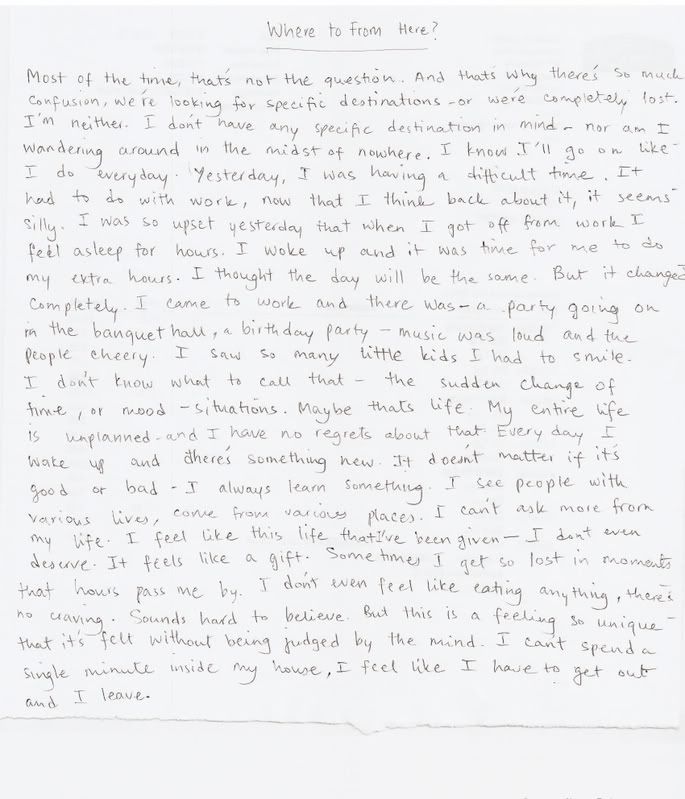 Where to From Here?
Most of the time, that's not the question. And that's why there's so much
confusion, we're looking for specific destinations - or we're completely lost.
I'm neither. I don't have any specific destination in mind - nor am I
wandering around in the midst of nowhere. I know I'll go on like -
I do everyday. Yesterday, I was having a difficult time. It
had to do with work, now that I think back about it, it seems -
silly. I was so upset yesterday that when I got off from work I
feel asleep for hours. I woke up and it was time for me to do
my extra hours. I thought the day will be the same. But it changed
completely. I came to work and there was - a party going on
in the banquet hall, a birthday party - music was loud and the
people cheery. I saw so many little kids I had to smile.
I don't know what to call that - the sudden change of
time, or mood - situations. Maybe thats life. My entire life
is unplanned - and I have no regrets about that. Every day I
wake up and there's something new. It doesn't matter if it's
good or bad - I always learn something. I see people with
various lives, come from various places. I can't ask more from
my life. I feel like this life that I've been given - I dont even
deserve. It feels like a gift. Sometimes I get so lost in moments
that hours pass me by. I don't even feel like eating anything, there's
no craving. Sounds hard to believe. But this is a feeling so unique -
that it's felt without being judged by the mind. I can't spend a
single minute inside my house, I feel like I have to get out
and I leave.